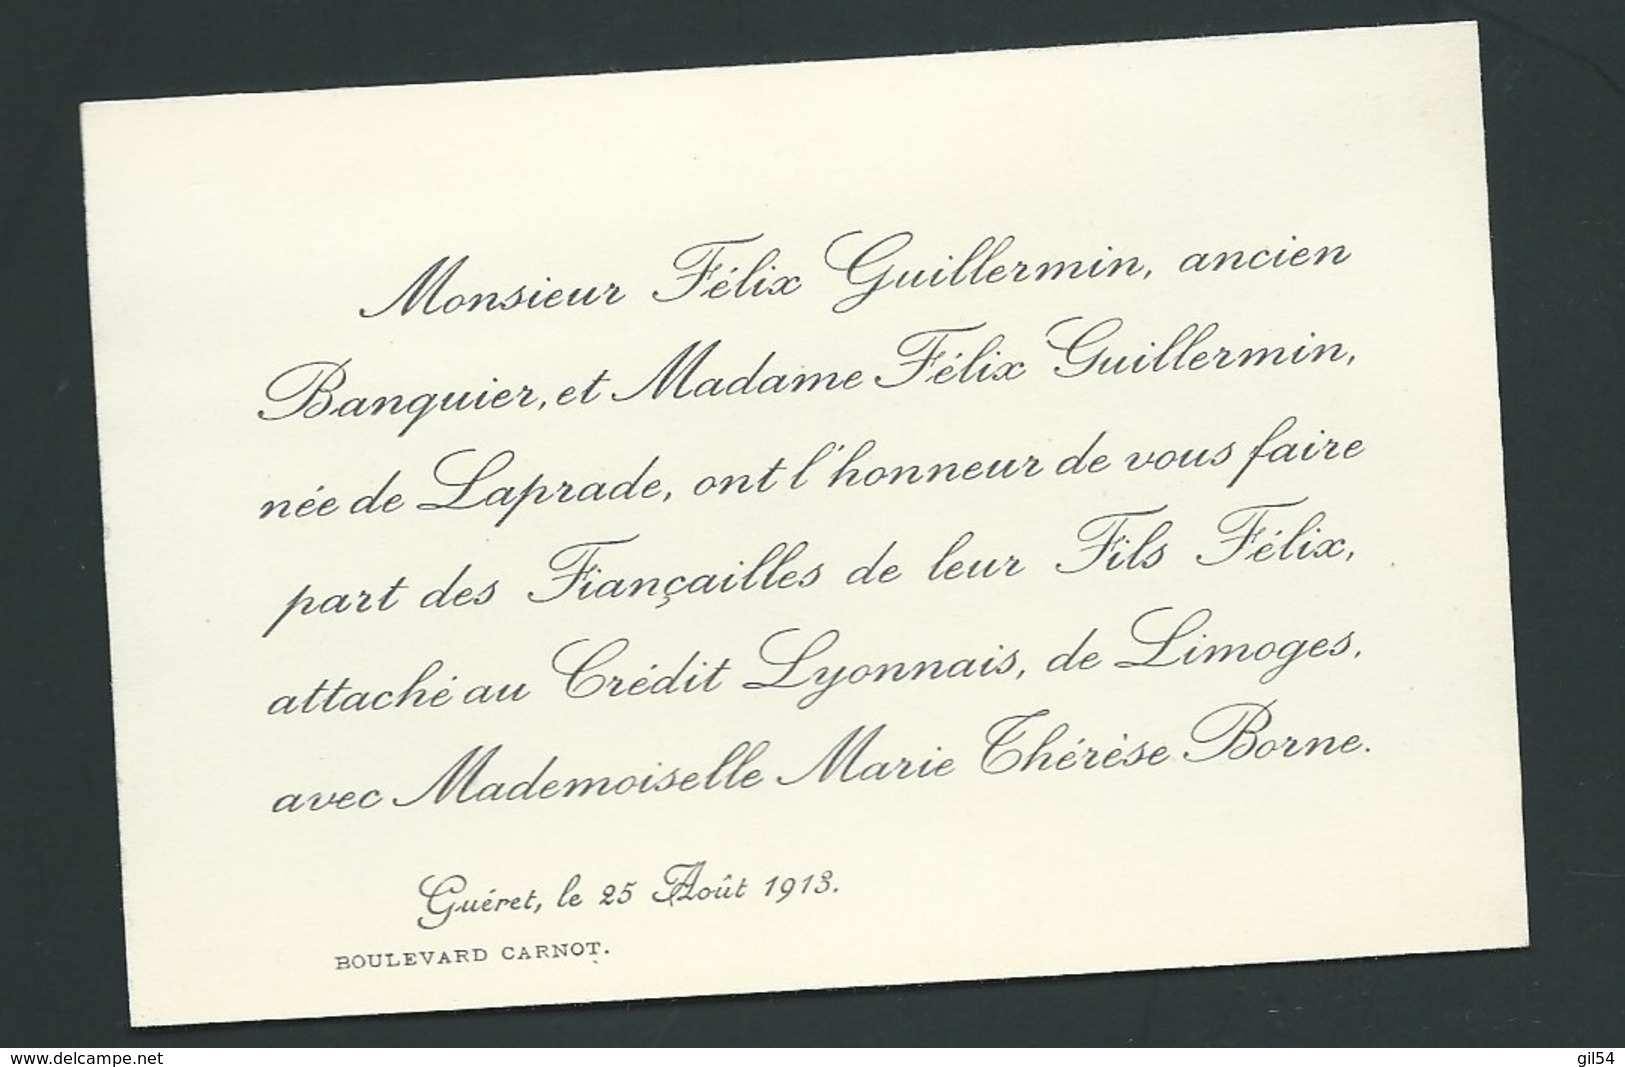 Monsieur Félix Guillermin, ancien
Banquier, et Madame Félix Guillermin,
née de Laprade, ont l'honneur de vous faire
part des Fiançailles de leur Fils Félix,
attaché au Crédit Lyonnais, de Limoges,
avec Mademoiselle Marie Thérèse Borne.
Guéret, le 25 Août 1913.
BOULEVARD CARNOT.
www.delcampe.net
gil54